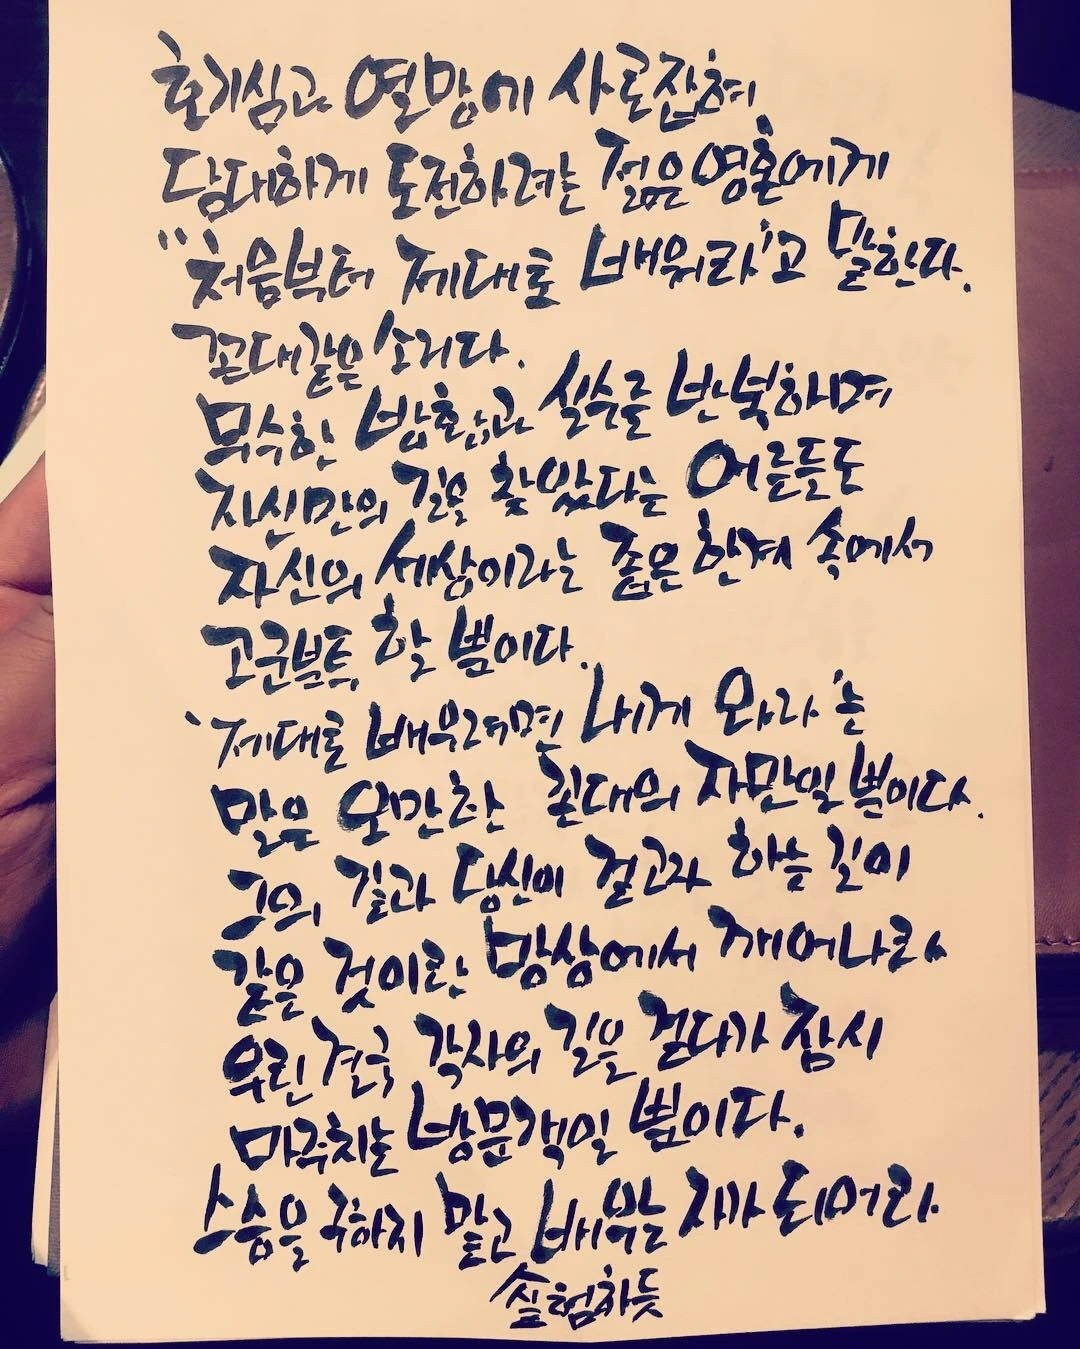 호기심과 열망에 사로잡혀
담대하게 도전하려는 젊은영혼에게
"처음부터 제대로 배워라'고 말한다.
꼰대같은 소리다.
무수한 방황과 실수를 반복하며
자신만의 길을 찾았다는 어른들도
자신의 세상이라는 좁은 한계 속에서
고군분투 할 뿐이다.
'제대로 배우려면 내게 와라'는
말은 오만한 꼰대의 자만일 뿐이다.
그의 길과 당신이 걷고자 하는 길이
같은 것이란 망상에서 깨어나라.
우린 결국 각자의 길을 걷다가 잠시
마주치는 방문객일 뿐이다.
스승을 구하지 말고 배우는 자가 되어라.
실험하듯